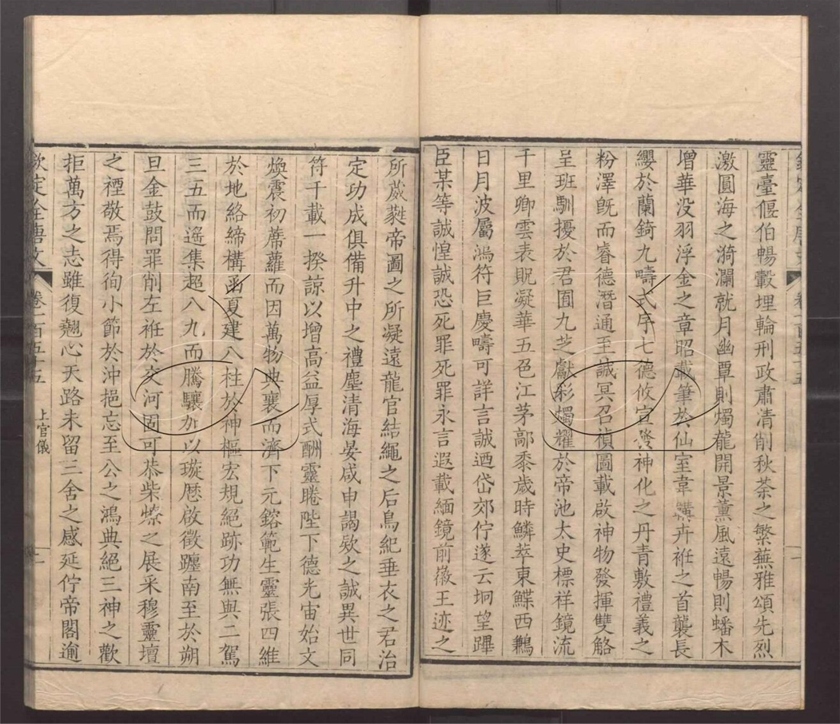 靈臺偃伯暢轂埋輪刑政肅清削秋荼之繁蕪雅頌先烈
激圓海之漪瀾就月幽覃則燭龍開景薰風遠暢則蟠木
增華没羽浮金之章昭筆於仙室韋韝卉袵之首襲長
纓於蘭錡九疇式序七德攸宣發神化之丹青敷禮義之
粉澤旣而睿德潛通至誠冥召禎圖載啟神物發揮雙觡
呈班馴擾於君囿九芝獻彩燭耀於帝池太史標祥鏡流
千里卿雲表貺凝華五色江茅鄗黍歲時鱗萃東鰈西鶼
日月波屬鴻符巨慶疇可詳言誠迺岱郊佇邃云坰望蹕
臣某等誠惶誠恐死罪死罪永言遐載緬鏡前徽王迹之
所葳蕤帝圖之所凝遠龍官結繩之后鳥紀垂衣之君治
定功成俱備升中之禮塵清海晏咸申謁欵之誠異世同
符千載一揆諒以增高益厚式酬靈睠陛下德先宙始文
煥震初席蘿而因萬物典襄而濟下元鎔範生靈張四維
於地絡締構函夏建八柱於神樞宏規絕跡功無與二駕
三五而遙集超八九而騰驤加以璇厯啟徵躔南至於朔
旦金鼓問罪削左袵於交河固可恭柴燎之展采穆靈壇
之禋敬焉得徇小節於沖挹忘至公之鴻典絕三神之歡
拒萬方之志雖復翹心天路未留三舍之感延佇帝閣逾
欽定全唐文 卷一百五十五 上官儀 一